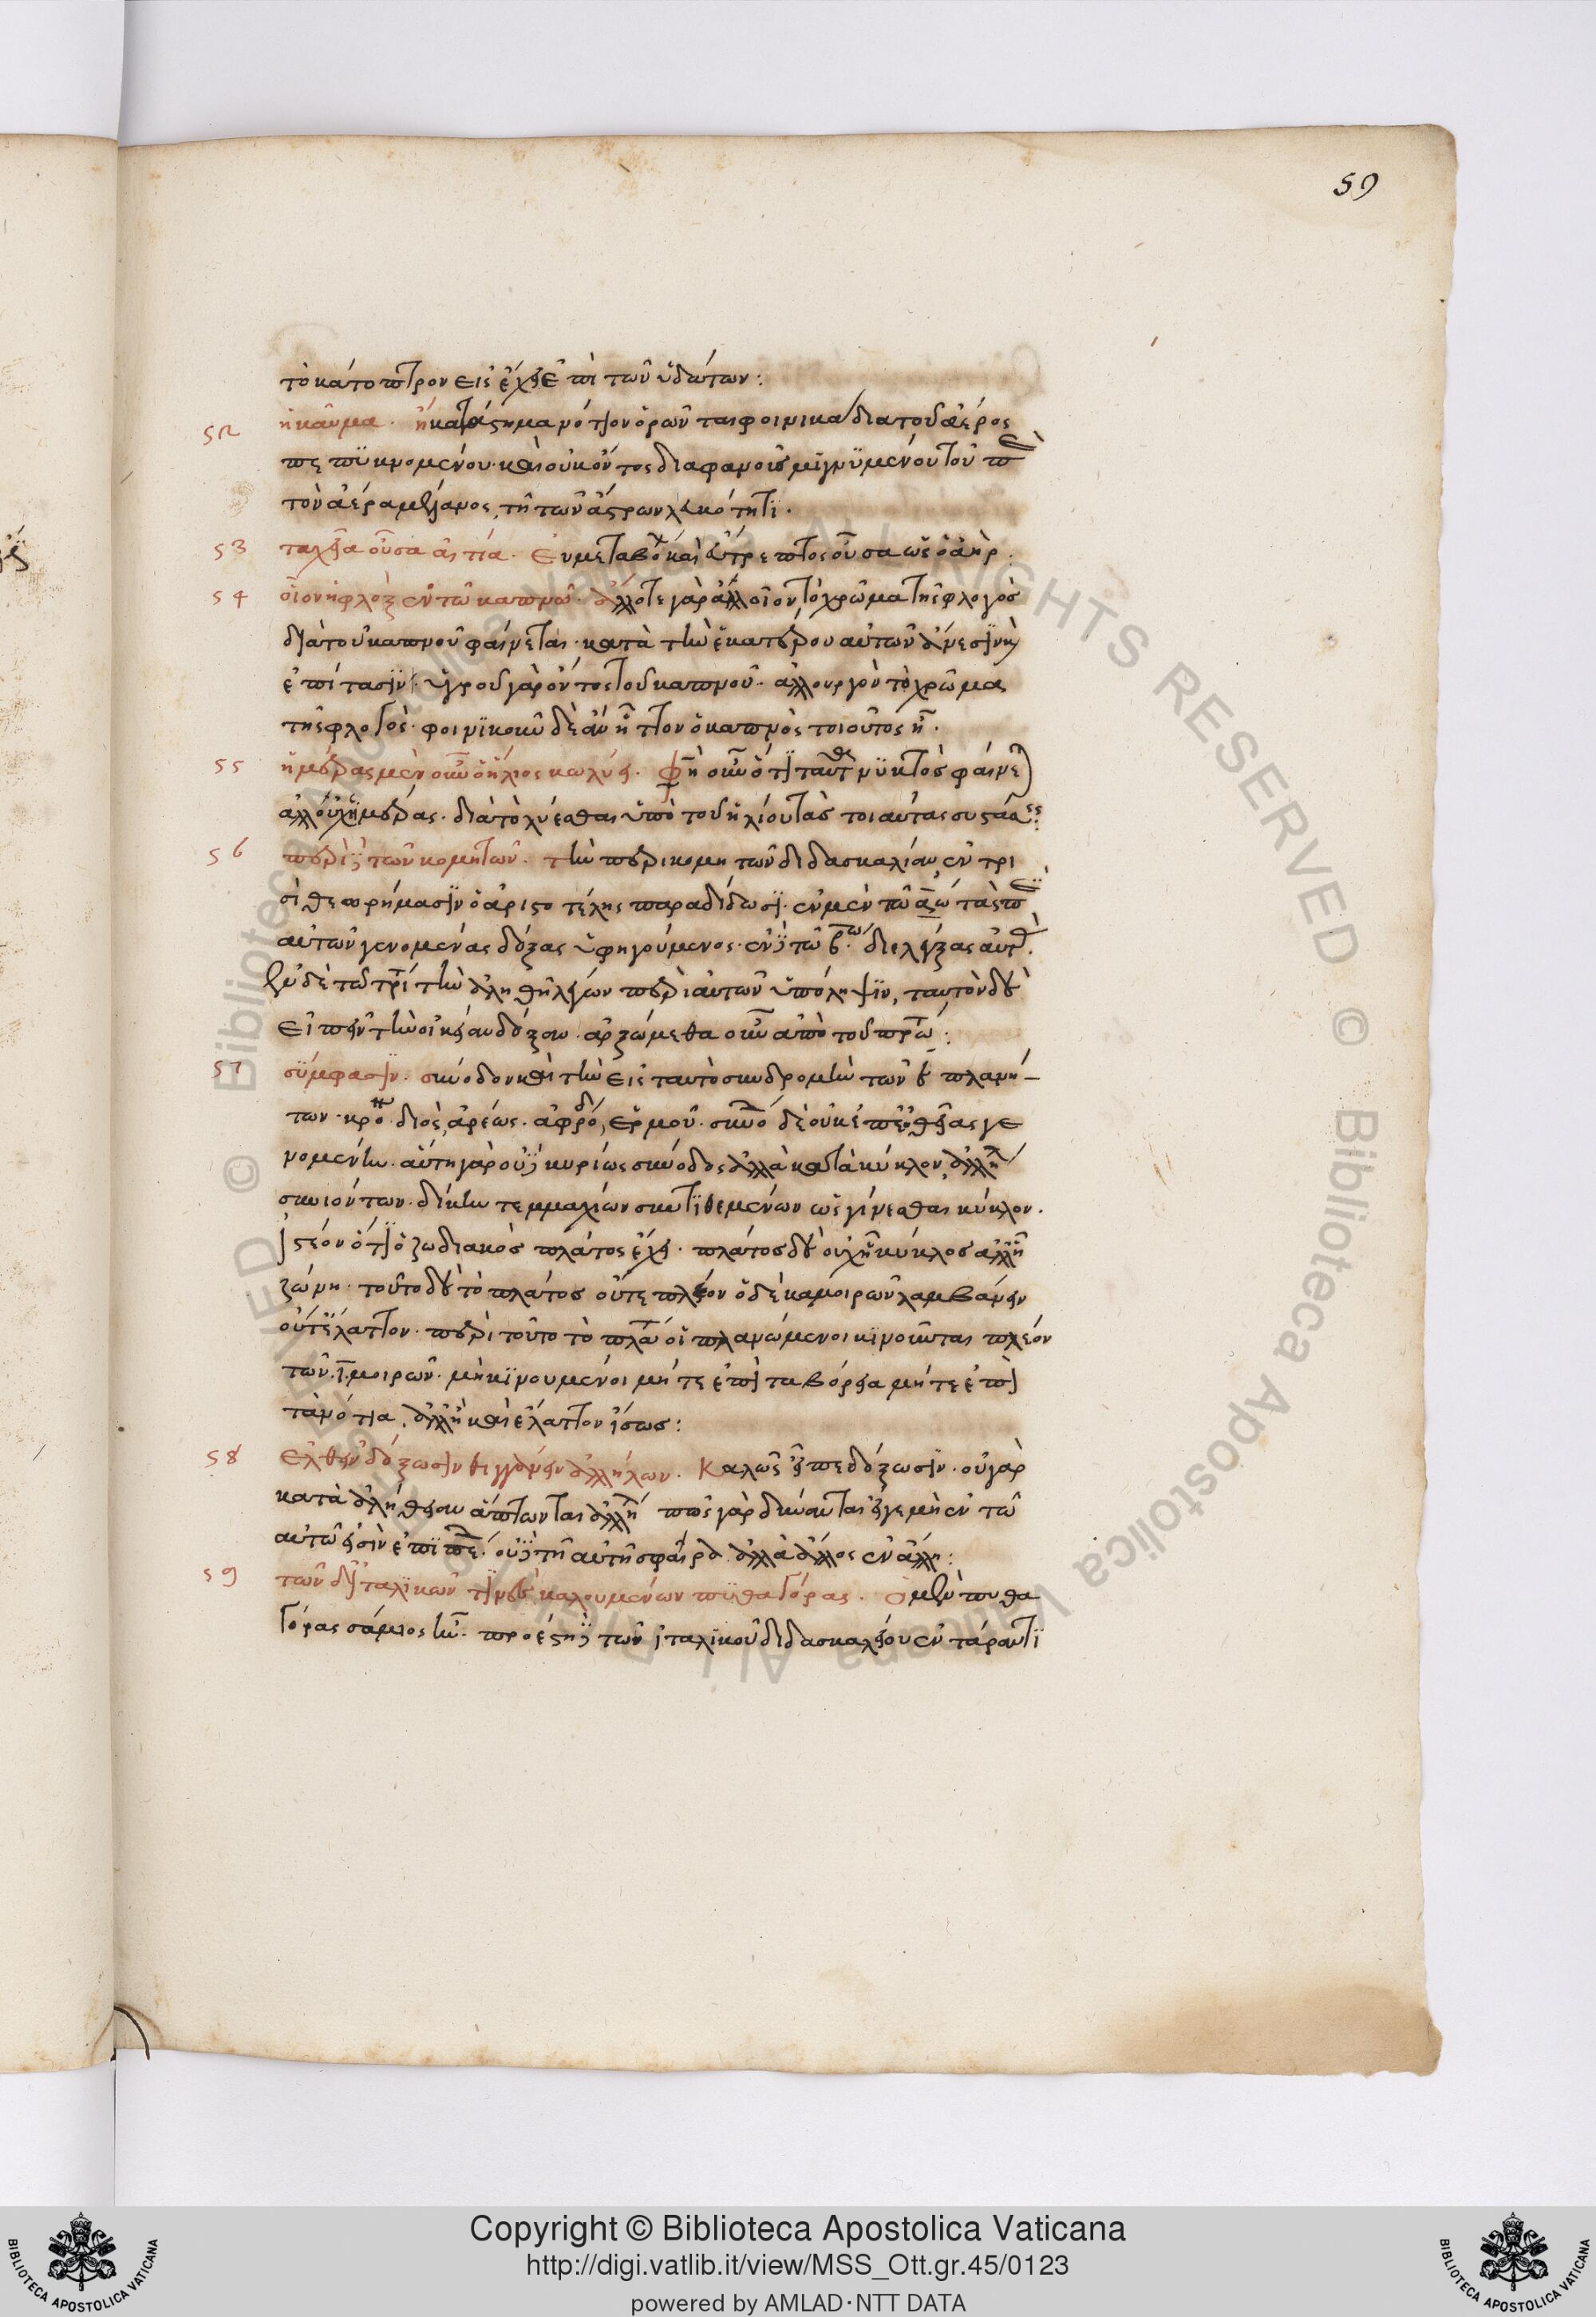 59
τὸ κάτοπτρον εἰς ἔχει ἐπὶ τῶν ὑδάτων:
52 ἢ καῦμα. ἢ κατάστημα νότιον ὁρῶνται φοινικαῖ διὰ τοῦ ἀέρος
πεπυκνομένου· καὶ οὐκ ὄντος διαφανοῦς μιγνυμένου τοῦ
τὸν ἀέρα μέλανος, τῆ τῶν ἄστρων λευκότητι.
53 ταχεῖα οὖσα αἰτία. Εὐμετάβολος καὶ εὔτρεπτος οὖσα ὡς ὁ ἀήρ.
54 οἷον ἡ φλὸξ ἐν τῶ καπνῶ. ἄλλοτε γὰρ ἀλλοῖον τὸ χρῶμα τῆς φλογὸς
διὰ τοῦ καπνοῦ φαίνεται· κατὰ τὴν ἑκατέρου αὐτῶν ἄνεσιν καὶ
ἐπίτασιν· ὑγροῦ γὰρ ὄντος τοῦ καπνοῦ· ἁλουργὸν τὸ χρῶμα
τῆς φλογὸς· φοινικοῦν δὲ ἂν ἧττον ὁ καπνὸς τοιοῦτος ἦ.
55 ἡμέρας μὲν οὖν ὁ ἥλιος κωλύει. φησὶ οὖν ὅτι ταῦτα νυκτὸς φαίνεται
ἀλλ' οὐχ ἡμέρας· διὰ τὸ λύεσθαι ὑπὸ τοῦ ἡλίου τὰς τοιαύτας συστάσεις:
56 περὶ δὲ τῶν κομητῶν. τὴν περὶ κομητῶν διδασκαλίαν ἐν τρι
σὶ θεωρήμασιν ὁ ἀριστοτέλης παραδίδωσι· ἐν μὲν τῶ αω τὰς περὶ
αὐτῶν γενομένας δόξας ὑφηγούμενος· ἐν δὲ τῶ βω διελέγξας αὐτὰς.
ἐν δὲ τῶ τρί τὴν ἀληθῆ λέγων περὶ αὐτῶν ὑπόληψιν, ταυτὸν δὲ
εἰπεῖν τὴν οἰκείαν δόξαν· ἀρξώμεθα οὖν ἀπὸ τοῦ πρώτου:
57 σύμφασιν. σύνοδον καὶ τὴν εἰς ταυτὸ συνδρομὴν τῶν ε πλανή-
των· κρόνου· διὸς, ἄρεως· ἀφροδί, ἑρμοῦ. σύνοδο δὲ οὐκ ἐπ' εὐθείας γε
νομένην· αὕτη γὰρ οὐδὲ κυρίως σύνοδος ἀλλὰ κατὰ κύκλον, ἀλλήλοις
συνιόντων· δίκην τεμμαχίων συντιθεμένων ὡς γίνεσθαι κύκλον.
ἰστέον ὅτι ὁ ζωδιακὸς πλάτος ἔχει· πλάτος δὲ οὐχ ἡ κύκλος ἀλλ' ἡ
ζώνη· τοῦτο δὲ τὸ πλάτος οὔτε πλεῖον ὁ δέκα μοιρῶν λαμβάνειν
οὔτε ἔλαττον· περὶ τοῦτο τὸ πλάτος οἱ πλανώμενοι κινοῦνται πλέον
τῶν ι μοιρῶν· μὴ κινουμένοι μήτε ἐπὶ τα βόρεια μήτε ἐπὶ
τὰ νότια, ἀλλ' ἢ καὶ ἔλαττον ἴσως:
58 ἐλθεῖν δόξωσιν θιγγάνειν ἀλλήλων. Καλῶς εἶπε δόξωσιν· οὐ γὰρ
κατὰ ἀλήθειαν ἅπτωνται ἀλλή πῶς γὰρ δύνανται εἴγε μὴ ἐν τῶ
αὐτῶ εἰσὶν ἐπιπέ. οὐδὲ τῆ αὐτῆ σφαίρα ἀλλὰ ἄλλος ἐν ἄλλη:
59 τῶν δ' ἰταλικῶν τινὲς καλουμένων πυθαγόρας. Ὁ μὲν πυθα
γόρας σάμιος ἦν· προέστη δὲ τῶν ἰταλικοῦ διδασκαλείου ἐν τάραντι
Copyright © Biblioteca Apostolica Vaticana
http://digi.vatlib.it/view/MSS_Ott.gr.45/0123
powered by AMLAD·NTT DATA